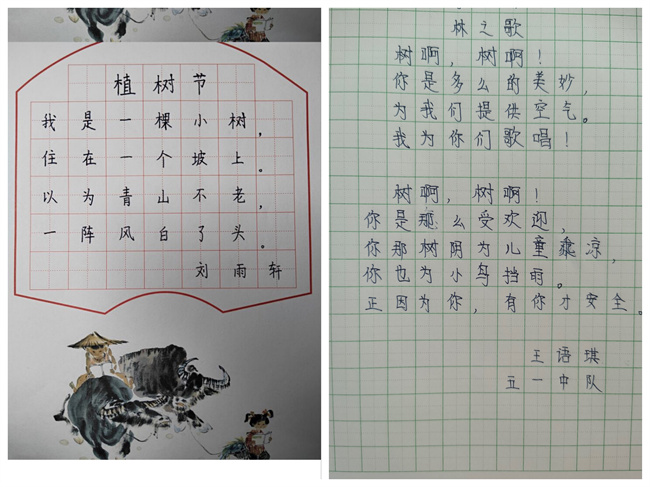 植树节
我是一棵小树，
住在一个坡上。
以为青山不老，
一阵风白了头。
刘雨轩
林之歌
树啊，树啊！
你是多么的美妙，
为我们提供空气。
我为你们歌唱！
树啊，树啊！
你是那么受欢迎，
你那树阴为儿童乘凉，
你也为小鸟挡雨。
正因为你，有你才安全。
王语琪
五一中队